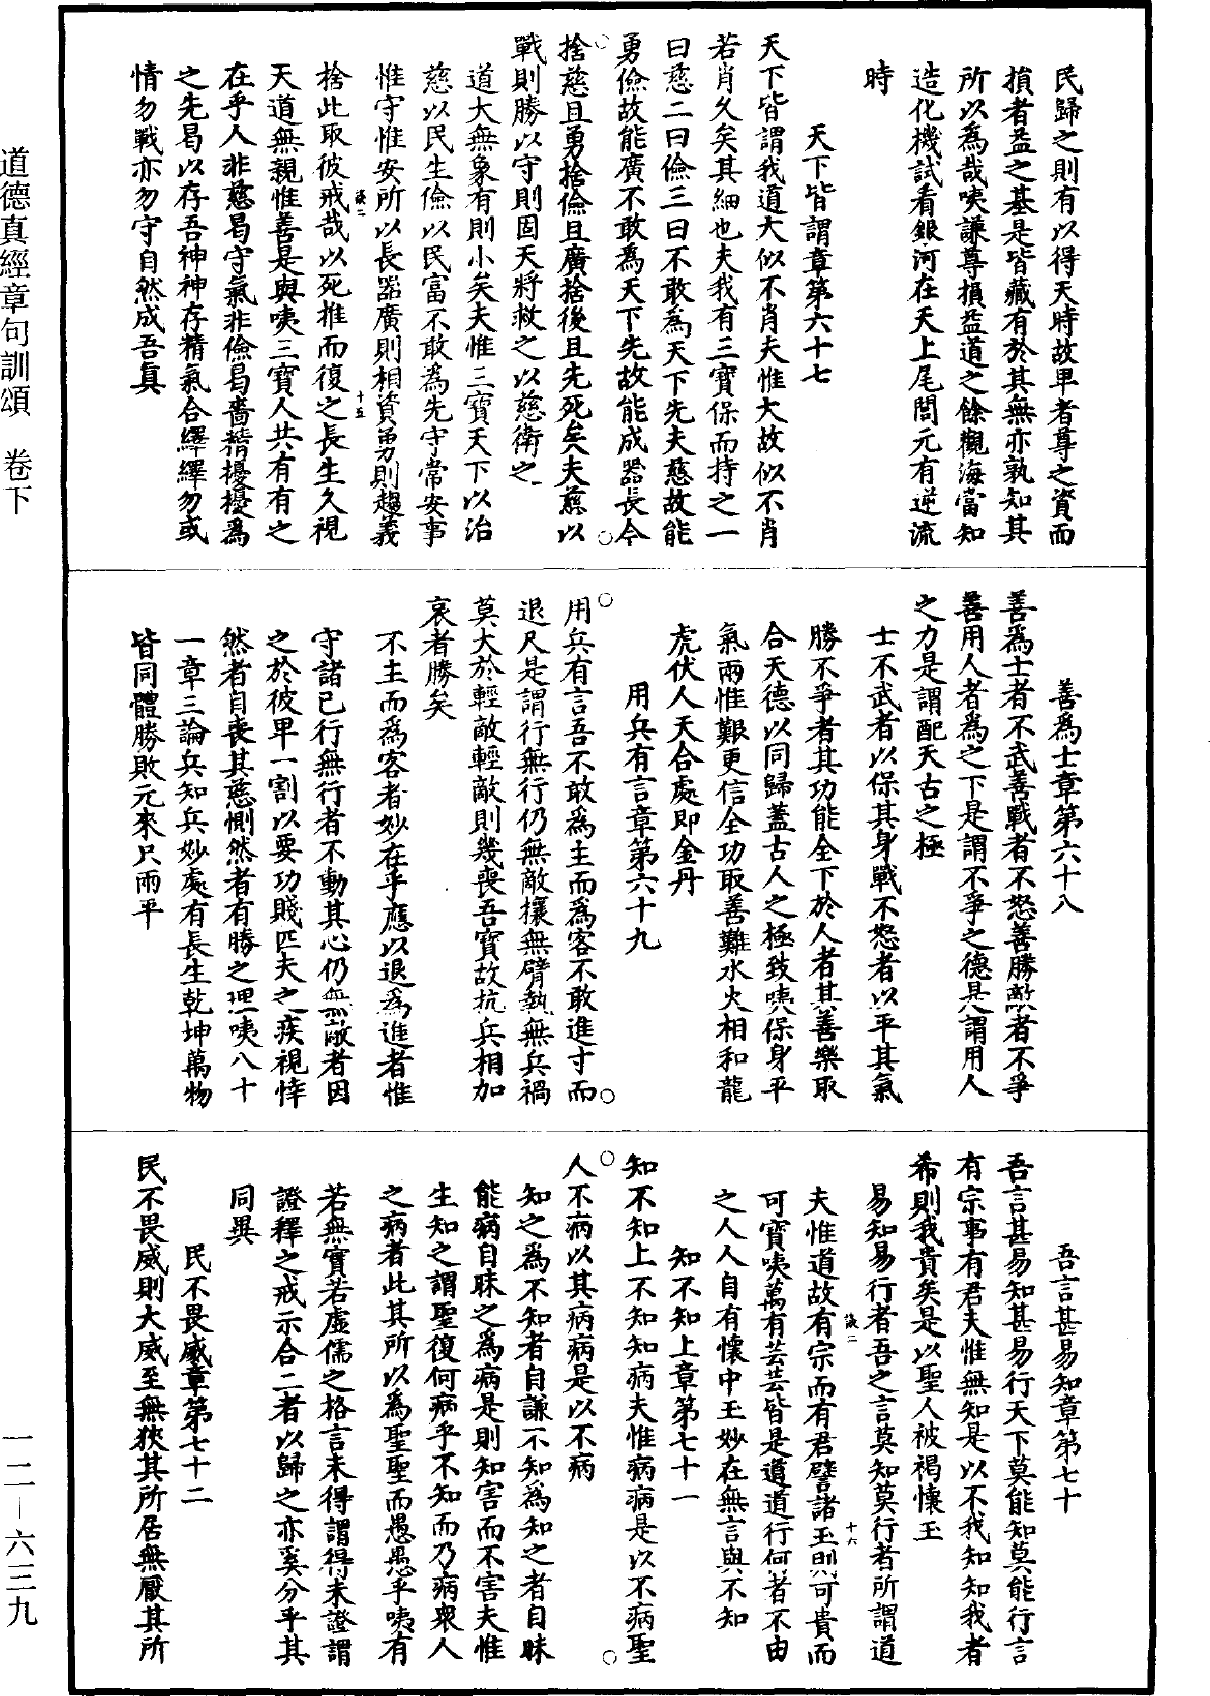 道德真經章句訓頌　卷下
民歸之則有以得天時故卑者尊之資而
損者益之基是皆藏有於其無亦孰知其
所以為哉咦謙尊損益道之餘觀海當知
造化機試看銀河在天上尾閭元有逆流
時
天下皆謂章第六十七
天下皆謂我道大似不肖夫惟大故似不肖
若肖久矣其細也夫我有三寶保而持之一
曰慈二曰儉三曰不敢為天下先夫慈故能
勇儉故能廣不敢為天下先故能成器長今
捨慈且勇捨儉且廣捨後且先死矣夫慈以
戰則勝以守則固天將救之以慈衛之
道大無象有則小矣夫惟三寶天下以治
慈以民生儉以民富不敢為先守常安事
惟守惟安所以長器廣則相資勇則趨義
捨此取彼戒哉以死推而復之長生久視
天道無親惟善是與咦三寶人共有有之
在乎人非慈曷守氣非儉曷嗇精擾擾為
之先曷以存吾神神存精氣合繹繹勿或
情勿戰亦勿守自然成吾真
善為士章第六十八
善為士者不武善戰者不怒善勝敵者不爭
善用人者為之下是謂不爭之德是謂用人
之力是謂配天古之極
士不武者以保其身戰不怒者以平其氣
勝不爭者其功能全下於人者其善樂取
合天德以同歸蓋古人之極致咦保身平
氣兩惟艱更信全功取善難水火相和龍
虎伏人天合處即金丹
用兵有言章第六十九
用兵有言吾不敢為主而為客不敢進寸而
退尺是謂行無行仍無敵攘無臂執無兵禍
莫大於輕敵輕敵則幾喪吾寶故抗兵相加
哀者勝矣
不主而為客者妙在乎應以退為進者惟
守諸已行無行者不動其心仍無敵者因
之於彼卑一割以要功賤匹夫之疾視悻
然者自喪其慈惻然者有勝之理咦八十
一章三論兵知兵妙處有長生乾坤萬物
皆同體勝敗元來只兩平
吾言甚易知章第七十
吾言甚易知甚易行天下莫能知莫能行言
有宗事有君夫惟無知是以不我知知我者
希則我貴矣是以聖人被褐懷玉
易知易行者吾之言莫知莫行者所謂道
夫惟道故有宗而有君譬諸玉則可貴而
可寶咦萬有芸芸皆是道道行何者不由
之人人自有懷中玉妙在無言與不知
知不知上章第七十一
知不知上不知知病夫惟病病是以不病聖
人不病以其病病是以不病
知之為不知者自謙不知為知之者自昧
能病自昧之為病是則知害而不害夫惟
生知之謂聖復何病乎不知而乃病衆人
之病者此其所以為聖聖而愚愚乎咦有
若無實若虛儒之格言未得謂得未證謂
證釋之戒示合二者以歸之亦奚分乎其
同異
民不畏威章第七十二
民不畏威則大威至無狹其所居無厭其所
一二－六三九